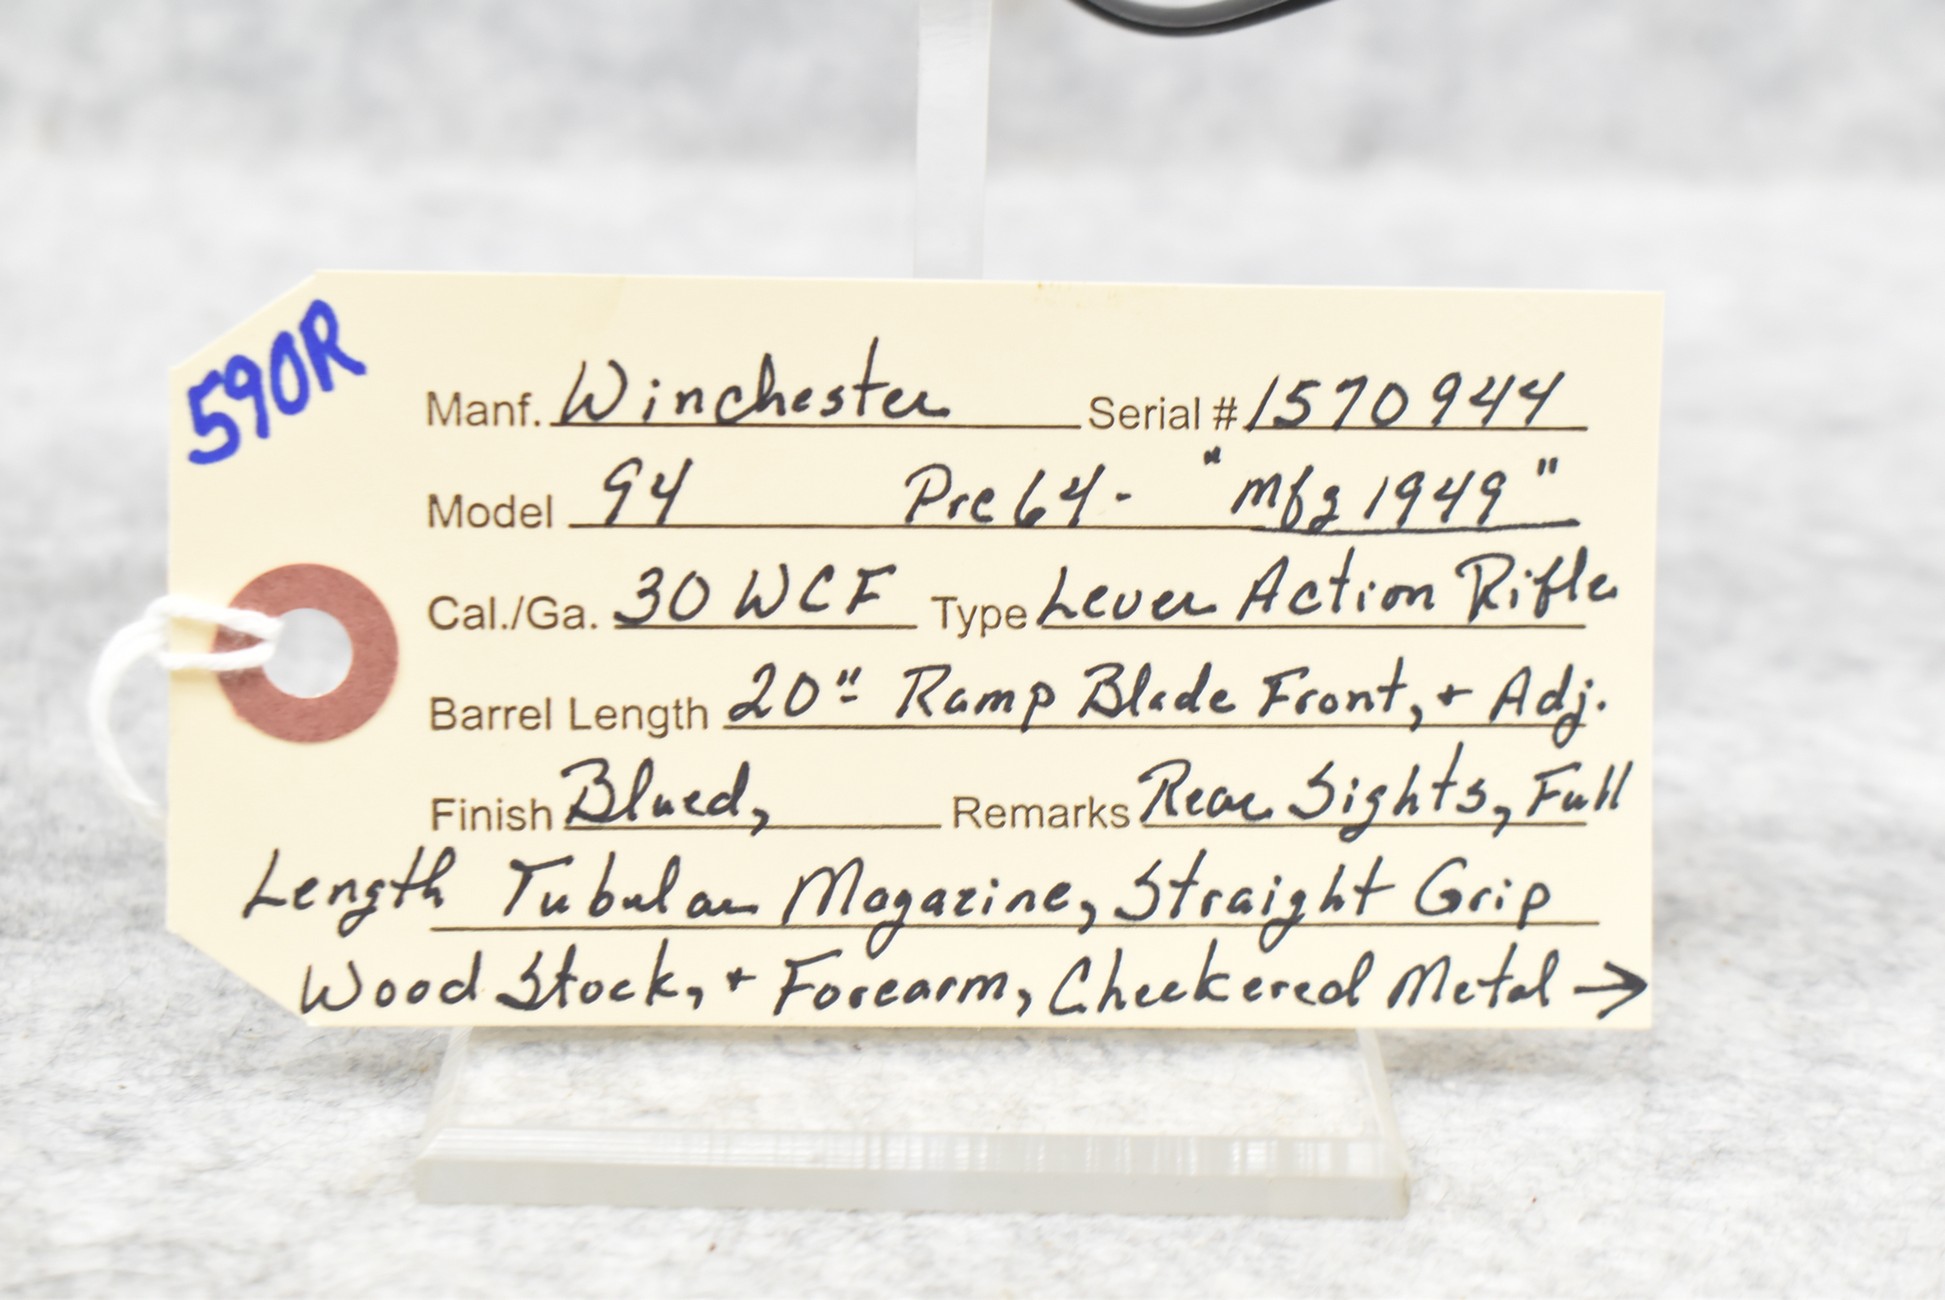 590R
Manf. Winchester Serial # 1570944
Model 94 Pre 64 - "Mfg 1949"
Cal./Ga. 30 WCF Type Lever Action Rifle
Barrel Length 20" Ramp Blade Front, + Adj.
Finish Blued, Remarks Rear Sights, Full
Length Tubular Magazine, Straight Grip
Wood Stock, + Forearm, Checkered Metal →